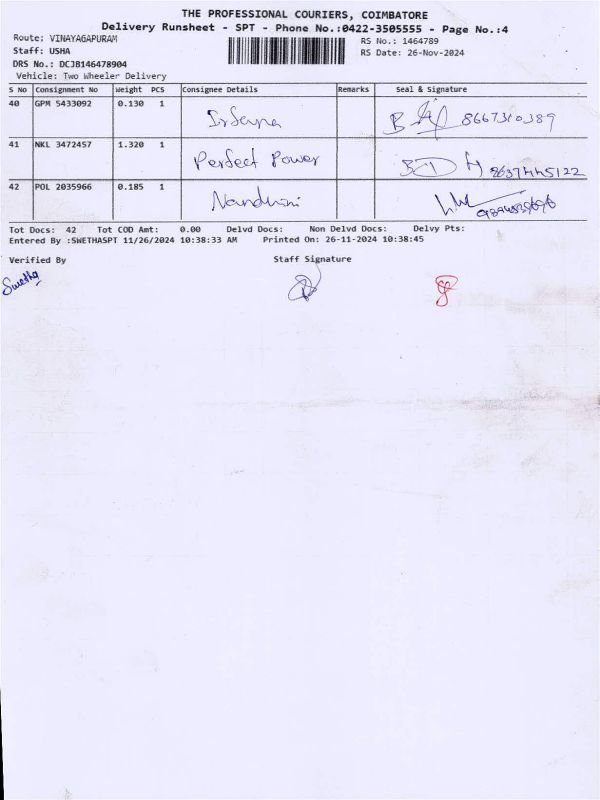 THE PROFESSIONAL COURIERS, COIMBATORE
Delivery Runsheet - SPT - Phone No.:0422-3505555 - Page No.:4
Route: VINAYAGAPURAM RS No.: 1464789
Staff: USHA RS Date: 26-Nov-2024
DRS No.: DCJB146478904
Vehicle: Two Wheeler Delivery
S No Consignment No Weight PCS Consignee Details Remarks Seal & Signature
40 GPM 5433092 0.130 1 8667310389
41 NKL 3472457 1.320 1 Perfect Power
42 POL 2035966 0.185 1 Nandhini
Tot Docs: 42 Tot COD Amt: 0.00 Delvd Docs: Non Delvd Docs: Delvy Pts:
Entered By :SWETHASPT 11/26/2024 10:38:33 AM Printed On: 26-11-2024 10:38:45
Verified By Staff Signature
Swetha